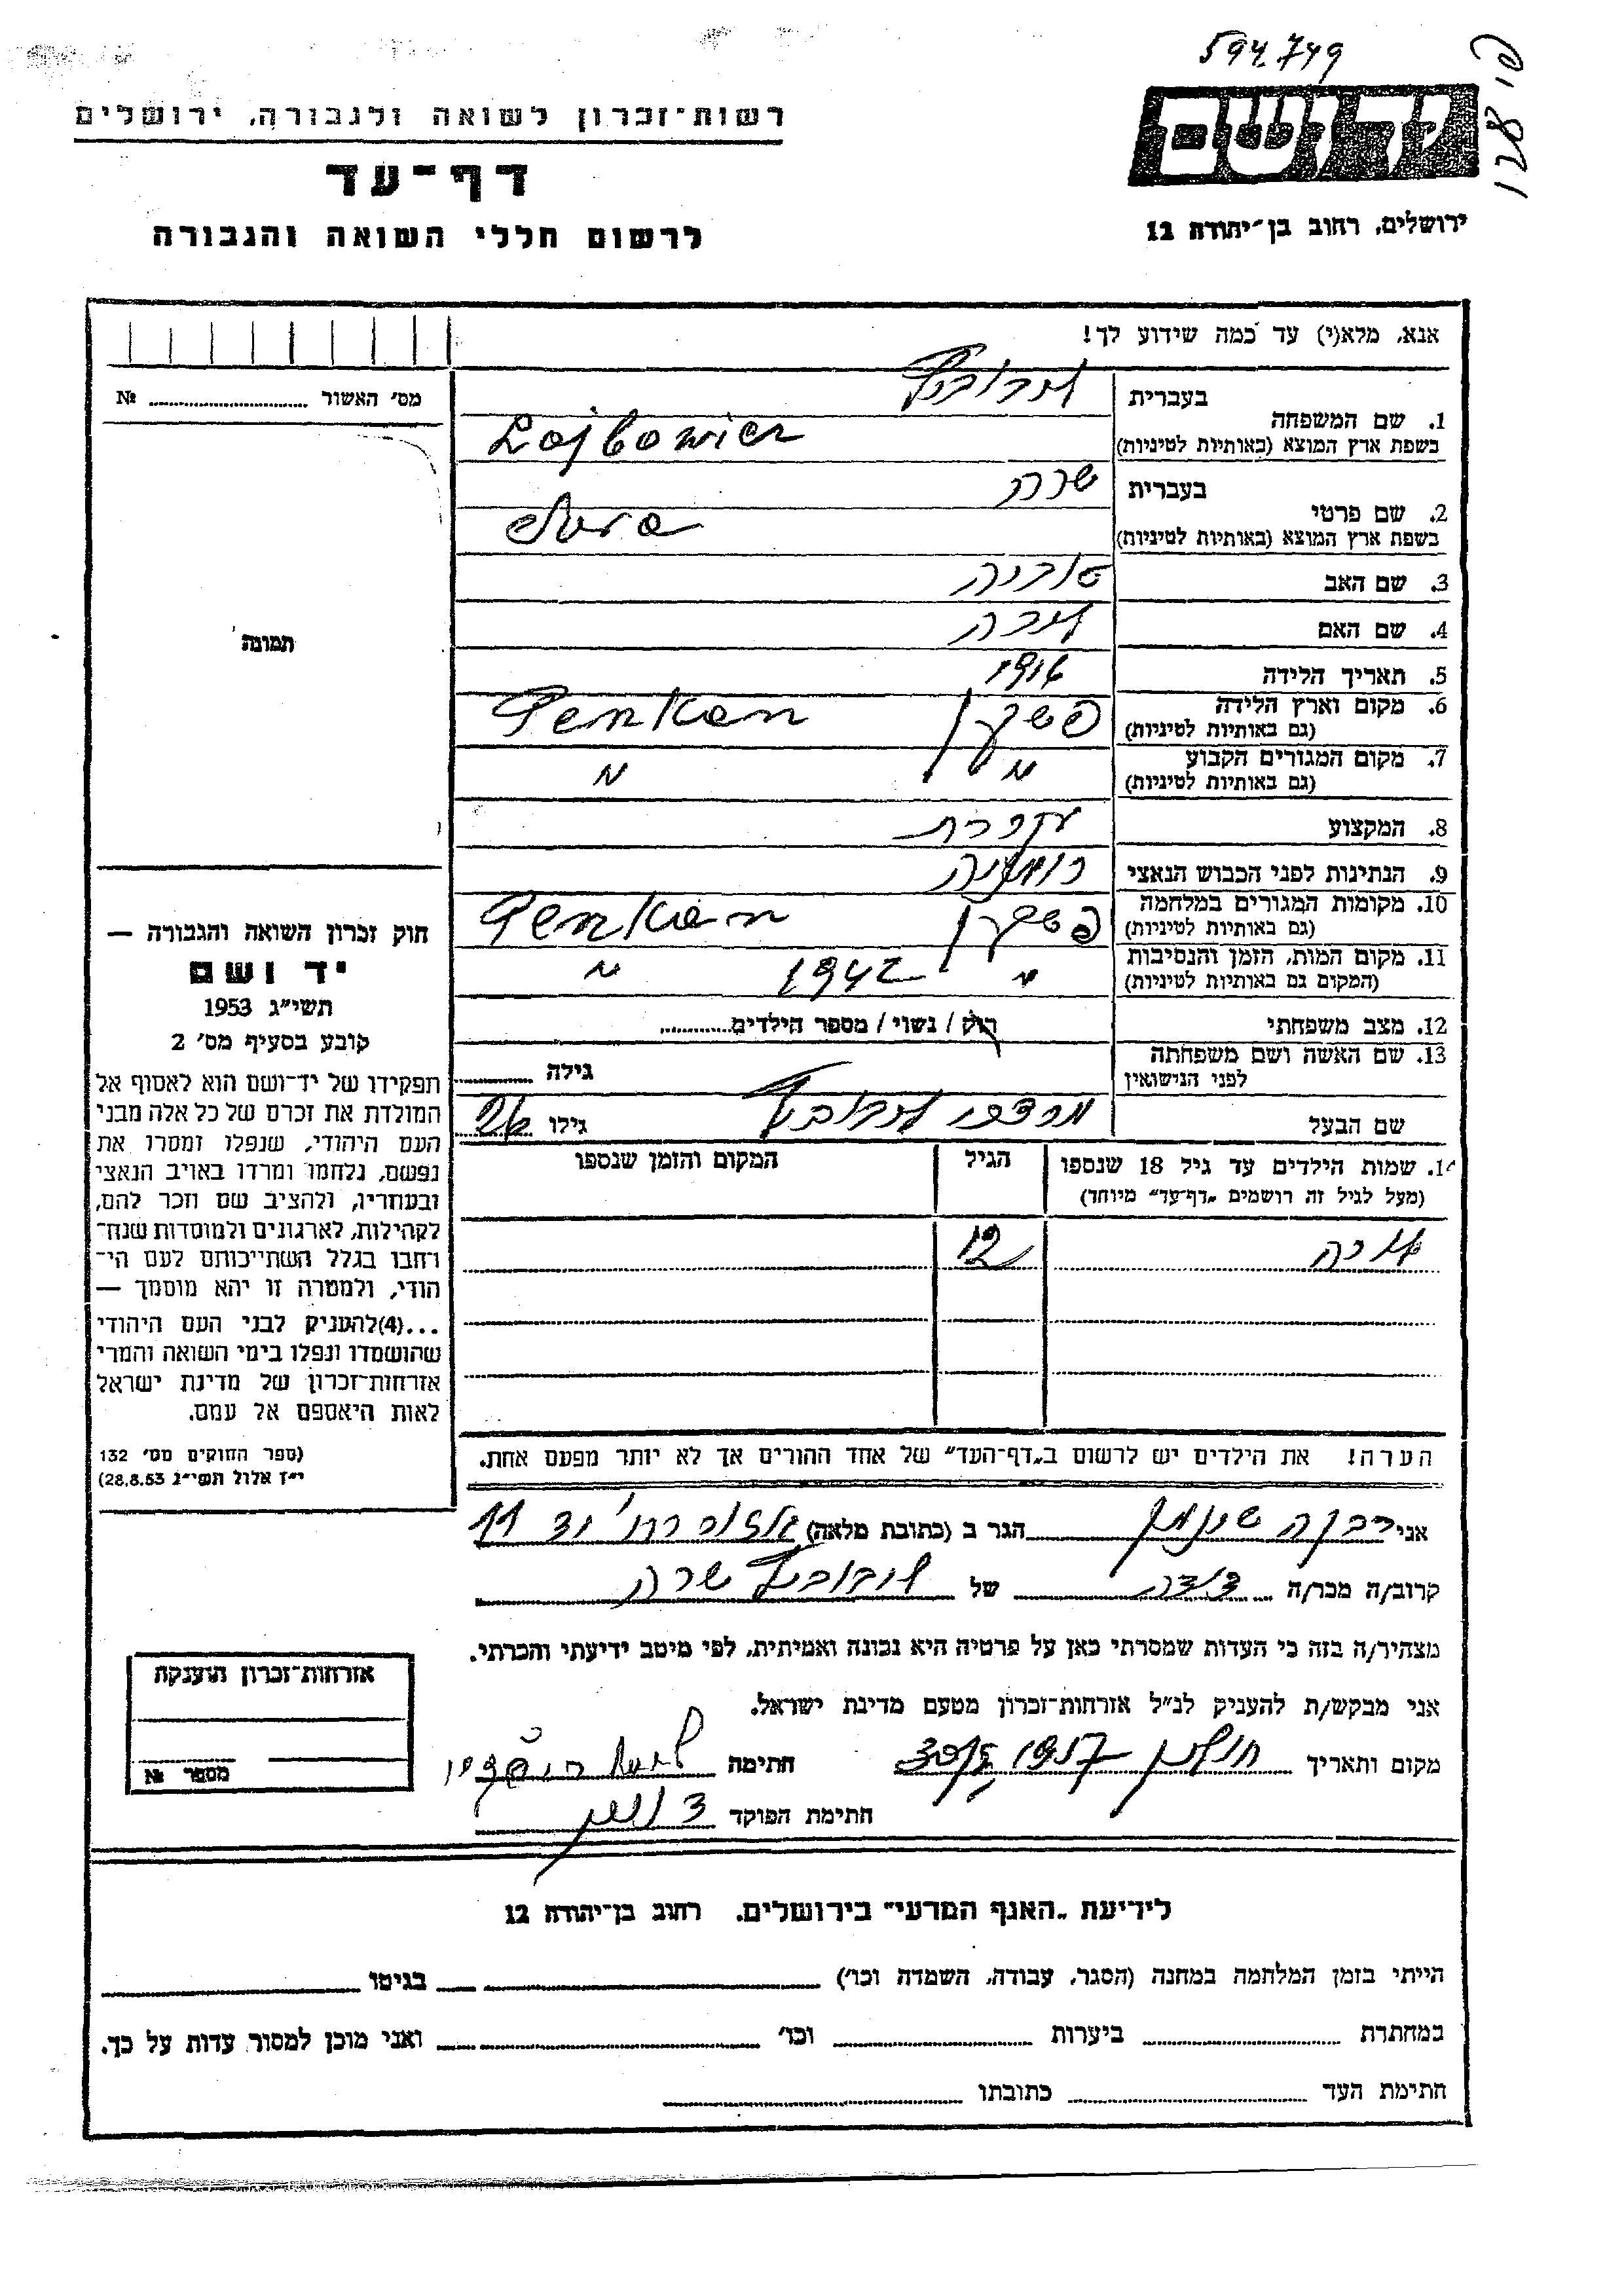 594.749
רשות־זכרון לשואה ולגבורה, ירושלים
ידושם
דף־עד
לרשום חללי השואה והגבורה
ירושלים, רחוב בן־יהודה 12
אנא, מלא(י) עד כמה שידוע לך!
מס׳ האשור ........ №
תמונה
1. שם המשפחה
בעברית
בשפת ארץ המוצא (באותיות לטיניות) Lajbowicz
2. שם פרטי
בעברית שרה
בשפת ארץ המוצא (באותיות לטיניות) Sura
3. שם האב טוביה
4. שם האם
5. תאריך הלידה 1916
6. מקום וארץ הלידה
(גם באותיות לטיניות)
7. מקום המגורים הקבוע
(גם באותיות לטיניות) " "
8. המקצוע עקרת
9. הנתינות לפני הכבוש הנאצי רומניה
10. מקומות המגורים במלחמה
(גם באותיות לטיניות)
11. מקום המות, הזמן והנסיבות
(המקום גם באותיות לטיניות) " 1942 "
12. מצב משפחתי רוק / נשוי / מספר הילדים........
13. שם האשה ושם משפחתה
לפני הנישואין גילה ........
שם הבעל מרדכי לייבוביץ גילו
14. שמות הילדים עד גיל 18 שנספו הגיל המקום והזמן שנספו
(מעל לגיל זה רושמים „דף־עד״ מיוחד)
12
הערה! את הילדים יש לרשום ב„דף־העד״ של אחד ההורים אך לא יותר מפעם אחת.
חוק זכרון השואה והגבורה —
יד ושם
תשי״ג 1953
קובע בסעיף מס׳ 2
תפקידו של יד־ושם הוא לאסוף אל
המולדת את זכרם של כל אלה מבני
העם היהודי, שנפלו ומסרו את
נפשם, נלחמו ומרדו באויב הנאצי
ובעוזריו, ולהציב שם וזכר להם,
לקהילות, לארגונים ולמוסדות שנח־
רחבו בגלל השתייכותם לעם הי־
הודי, ולמטרה זו יהא מוסמך —
...(4)להעניק לבני העם היהודי
שהושמדו ונפלו בימי השואה והמרי
אזרחות־זכרון של מדינת ישראל
לאות היאספם אל עמם.
(ספר החוקים מס׳ 132
י״ז אלול תשי״ג 28,8.53)
אני רבקה הגר ב (כתובת מלאה) 11
קרוב/ה מכר/ה דודה של ליבוביץ שרה
מצהיר/ה בזה כי העדות שמסרתי כאן על פרטיה היא נכונה ואמיתית, לפי מיטב ידיעתי והכרתי.
אני מבקש/ת להעניק לנ״ל אזרחות־זכרון מטעם מדינת ישראל.
מקום ותאריך חולון חתימה
חתימת הפוקד
אזרחות־זכרון הוענקה
מספר №
לידיעת „האגף המדעי״ בירושלים, רחוב בן־יהודה 12
הייתי בזמן המלחמה במחנה (הסגר, עבודה, השמדה וכו׳) ........ בגיטו ........
במחתרת ........ ביערות ........ וכו׳ ........ ואני מוכן למסור עדות על כך.
חתימת העד ........ כתובתו ........